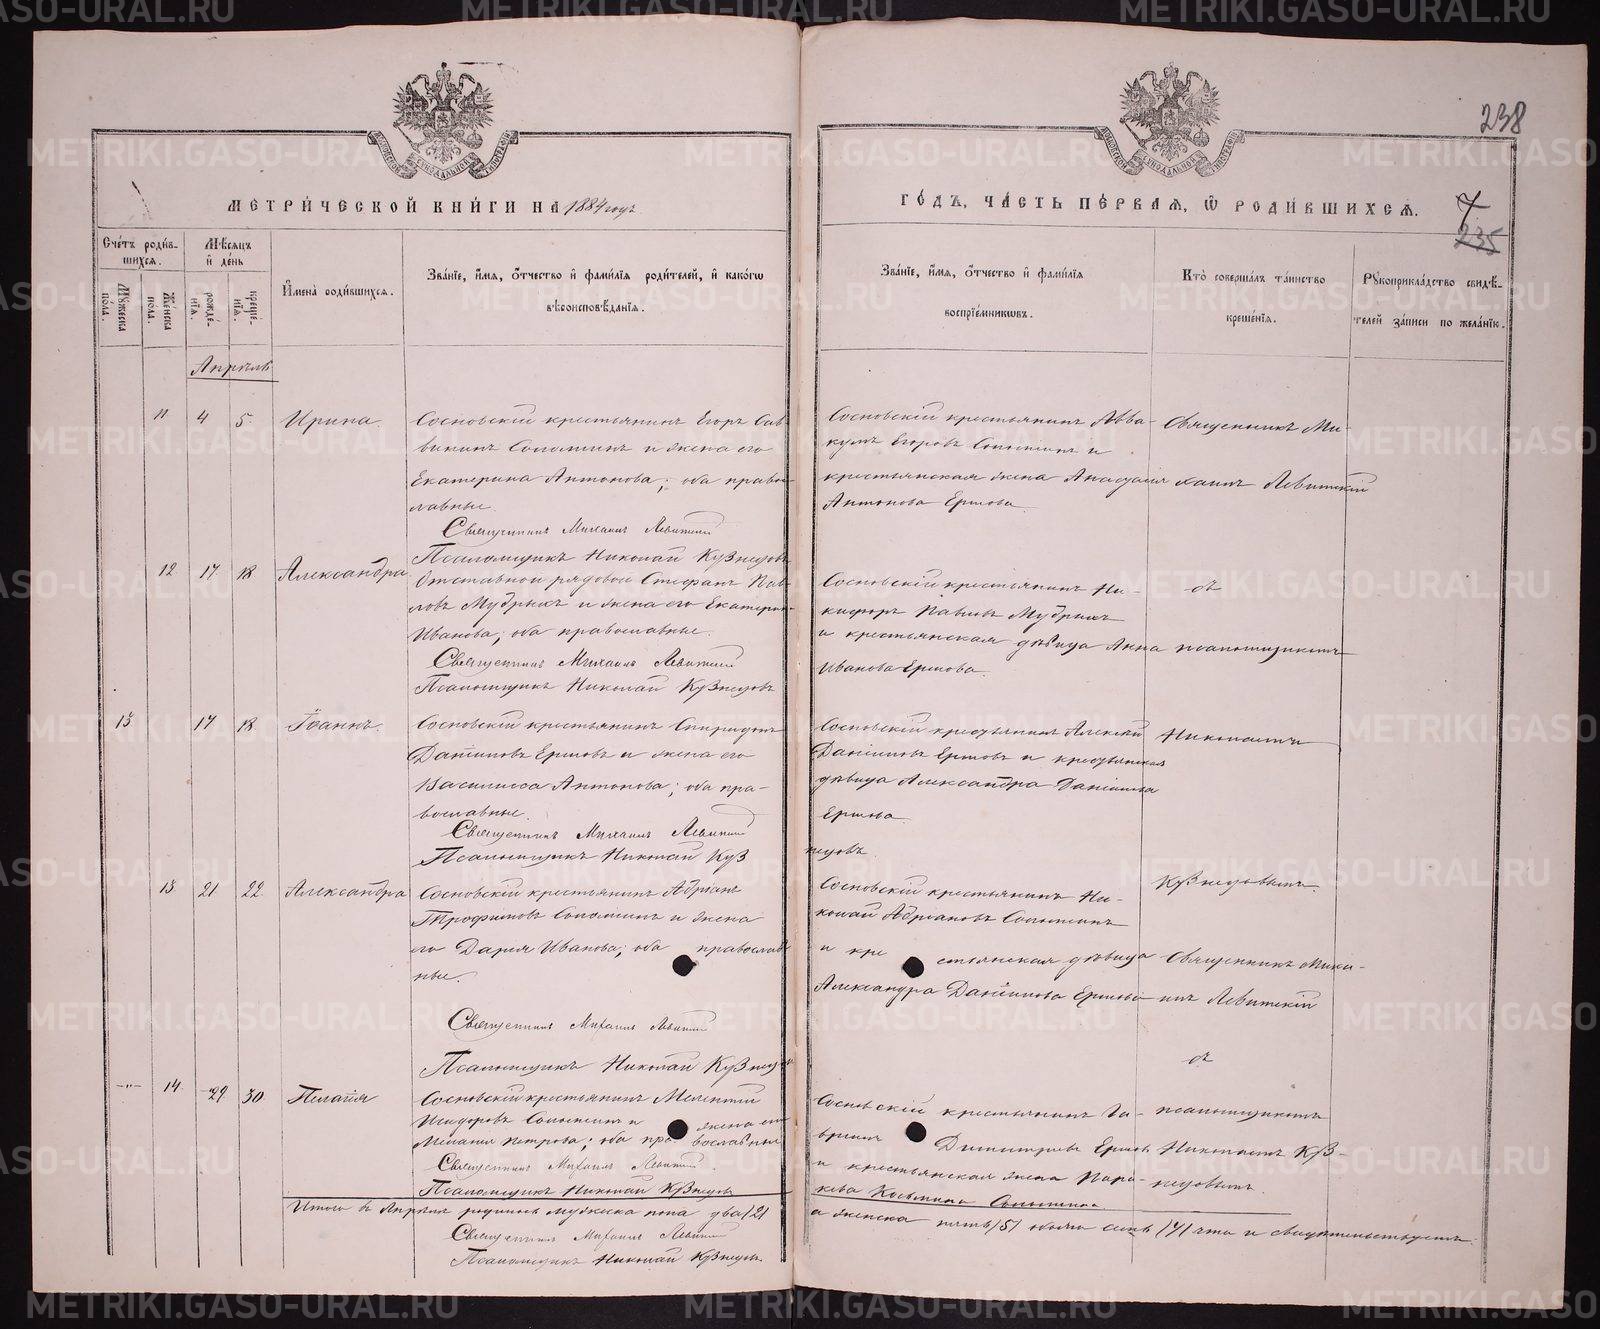 238
МЕТРИ́ЧЕСКОЙ КНИ́ГИ НА 1884 годъ
ГО́ДЪ, ЧА́СТЬ ПЕ́РВАЯ, Ѡ РОДИ́ВШИХСЯ.
7
235
Сче́тъ роди́в-
шихся.
Му́жеска по́ла.
Же́нска пола.
Мѣ́сяцъ и҆ день
рожде́-
нїя.
креще́-
нїя.
И҆мена̀ роди́вшихся.
Зва́нїе, и҆́мя, ѻ҆́тчество и҆ фами́лїя роди́телей, и҆ како́гѡ
вѣроисповѣ́данїя.
Зва́нїе, и҆́мя, ѻ҆́тчество и҆ фами́лїя
воспрїе́мникѡвъ.
Кто̀ соверша́лъ та́инство
креще́нїя.
Рꙋкоприкла́дство свидѣ́-
телей за́писи по жела́нїю.
Апрѣль
11 4 5 Ирина.
Сосновскій крестьянинъ Егоръ Сав-
винъ Сопотинъ и жена его
Екатерина Антонова; оба право-
лавные.
Священникъ Михаилъ Левитскій
Псаломщикъ Николай Кузнецовъ
Сосновскій крестьянинъ Авва-
кумъ Егоровъ и
крестьянская жена Анастасія
Антонова Ершова.
Священникъ Ми-
хаилъ Левитскій
12 17 18 Александра
Отставной рядовой Стефанъ Пав-
ловъ Мудрыхъ и жена его Екатерина
Иванова; оба православные.
Священникъ Михаилъ Левитскій
Псаломщикъ Николай Кузнецовъ
Сосновскій крестьянинъ Ни-
кифоръ Павловъ Мудрыхъ
и крестьянская дѣвица Анна
Иванова Ершова.
съ
псаломщикомъ
13 17 18 Іоаннъ.
Сосновскій крестьянинъ Спиридонъ
Даніиловъ Ершовъ и жена его
Василисса Антонова; оба пра-
вославные.
Священникъ Михаилъ Левитскій
Псаломщикъ Николай Куз
нецовъ
Сосновскій крестьянинъ Алексѣй
Даніиловъ Ершовъ и крестьянская
дѣвица Александра Даніилова
Ершова.
Николаемъ
Кузнецовымъ.
13 21 22 Александра
Сосновскій крестьянинъ Адріанъ
Трофимовъ и жена
его Дарія Иванова; оба православ
ные.
Священникъ Михаилъ Левитскій
Псаломщикъ Николай Кузнецовъ
Сосновскій крестьянинъ Ни-
колай Адріановъ
и крестьянская дѣвица
Александра Даніилова Ершова
Священникъ Миха-
илъ Левитскій
съ
14 29 30 Пелагія
Сосновскій крестьянинъ Мелентій
Исидоровъ и жена его
Меланія Петрова; оба православные
Священникъ Михаилъ Левитскій.
Псаломщикъ Николай Кузнецовъ
Сосновскій крестьянинъ Га-
вріилъ Димитріевъ Ершовъ
и крестьянская жена Пара-
скева Козьмина
псаломщикомъ
Николаемъ Куз-
нецовымъ.
Итого въ Апрѣлѣ родилось мужеска пола два /2/
а женска пять /5/ обоего семь /7/ что и свидѣтельствуетъ:
Священникъ Михаилъ Левитскій
Псаломщикъ Николай Кузнецовъ
METRIKI.GASO-URAL.RU